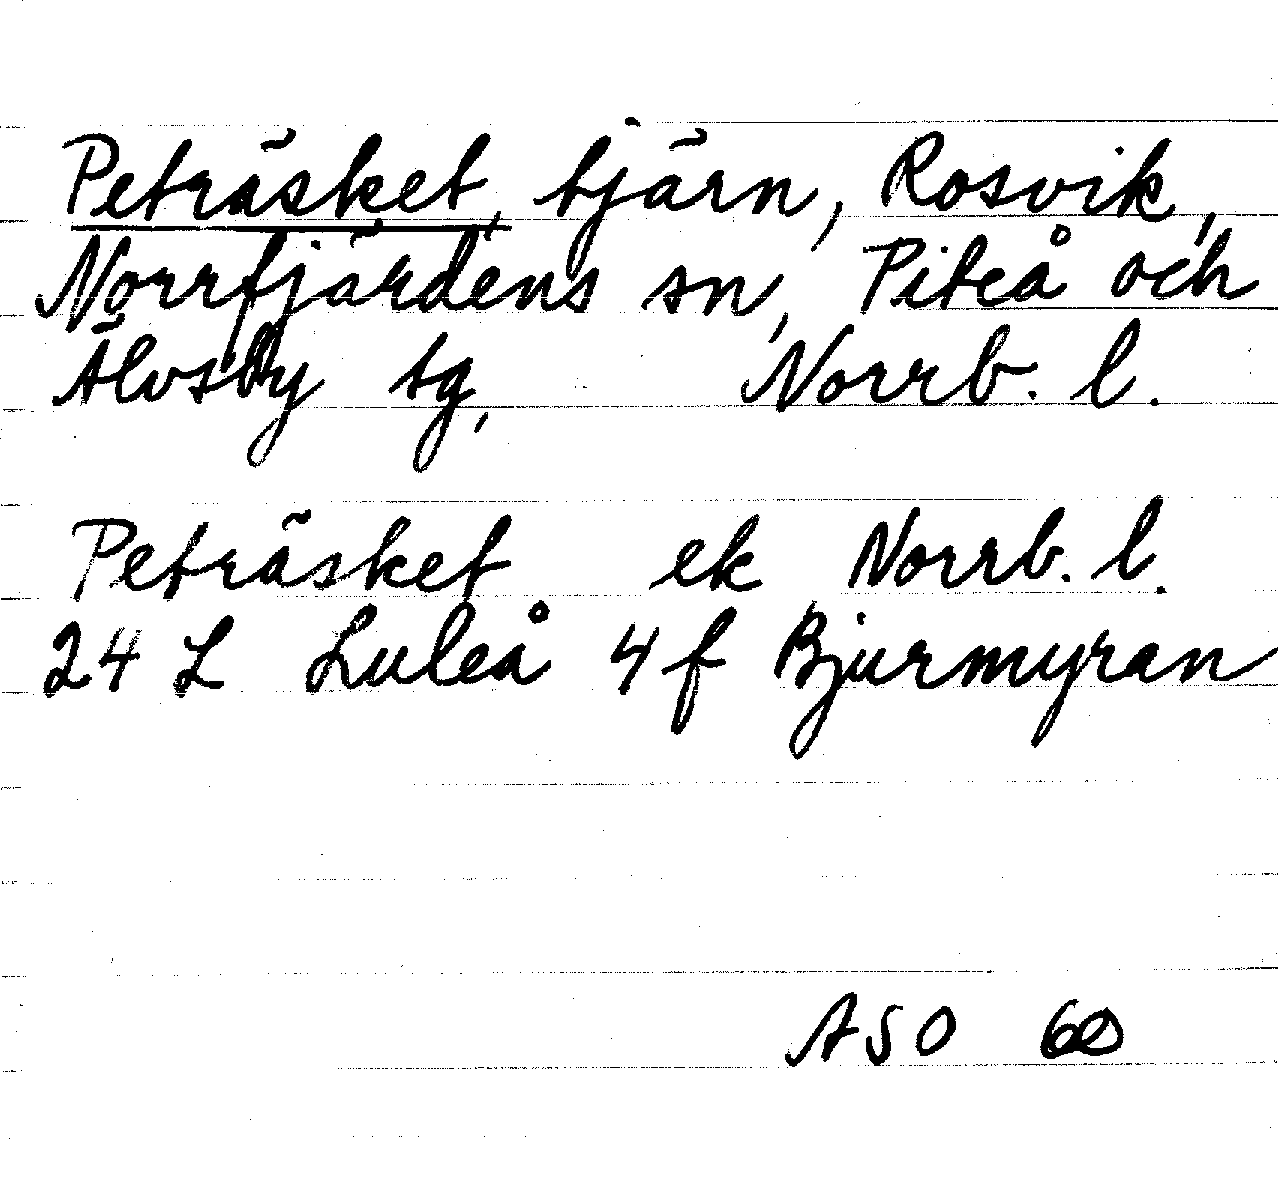 Peträsket, tjärn, Rosvik,
Norrfjärdens sn, Piteå och
Älvsby tg, Norrb. l.
Peträsket ek Norrb. l.
24 L Luleå 4 f Bjurmyran
ASO 60